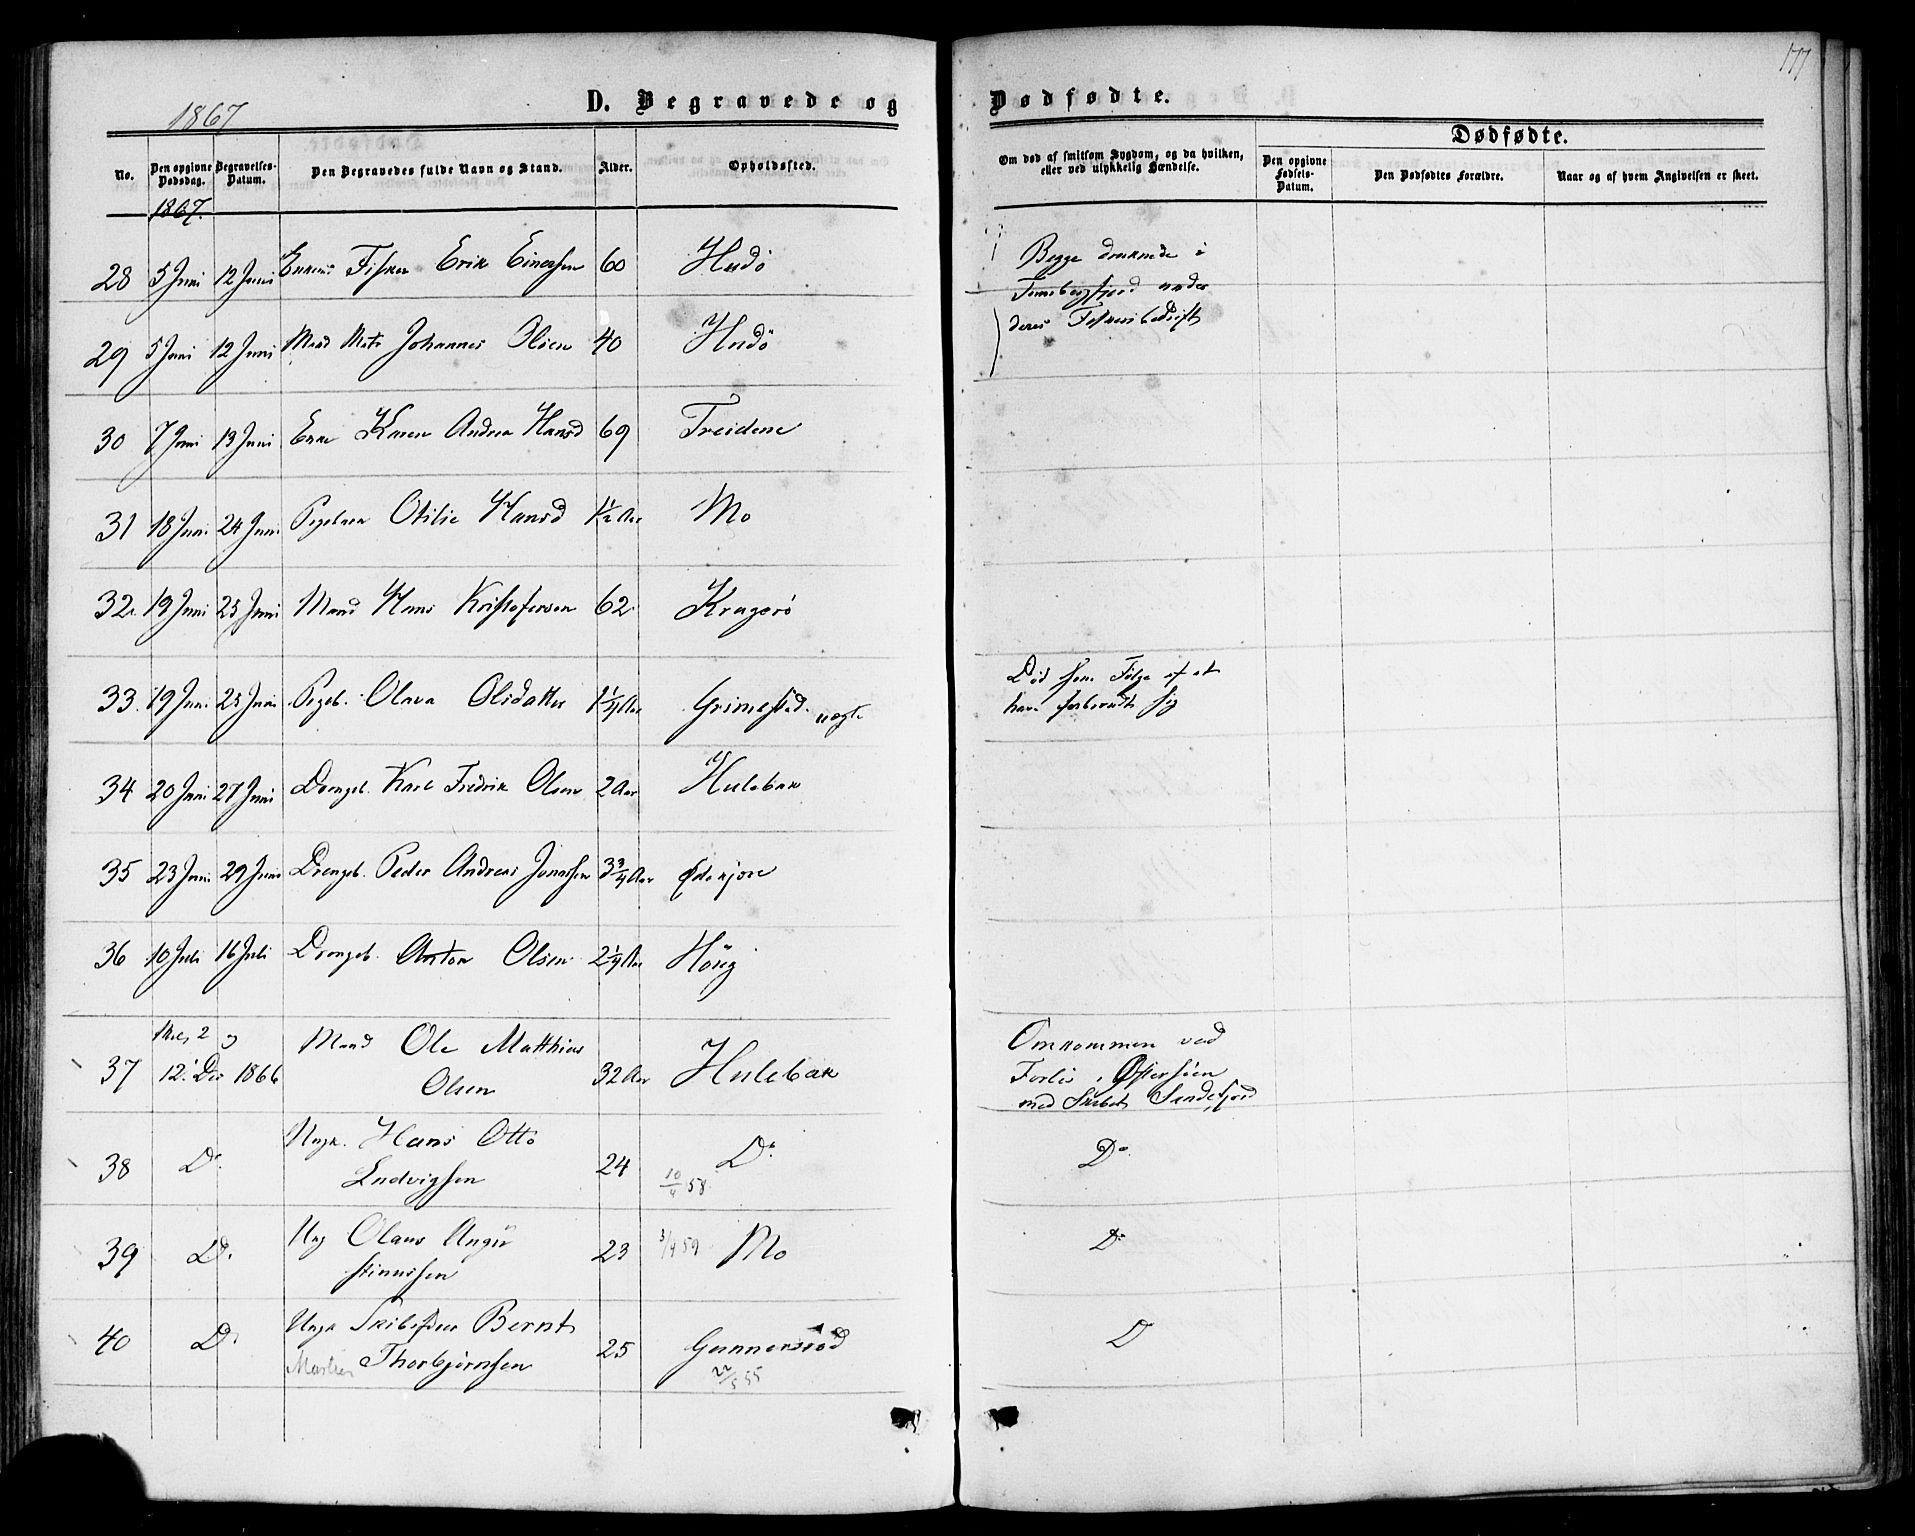 177
1867
D. Begravede og Dødfødte.
Dødfødte.
No.
Den opgivne Dødsdag.
Begravelses-Datum.
Den Begravedes fulde Navn og Stand.
Alder.
Opholdssted.
Om død af smitsom Sygdom, og da hvilken, eller ved ulykkelig Hændelse.
Den opgivne Fødsels-Datum.
Den Dødfødtes Forældre.
Naar og af hvem Angivelsen er skeet.
1867.
28 5 Juni 12 Juni Fisker Erik Einersen 60 Hudö Begge druknede i
Tønsbergfjord under
deres Fiskeribedrift
29 5 Juni 12 Juni Mand Johannes Olsen 40 Hudö
30 7 Juni 13 Juni Enke Karen Andrea Hansd 69 Treidene
31 18 Juni 24 Juni Pigebarn Otilie Hansd 1½ Aar Mo
32. 19 Juni 25 Juni Mand Hans Kristofersen 62 Kragerö
33. 19 Juni 25 Juni Pigeb. Olava Olsdatter 1¼ Aar Grimestad Död som Fölge af at
have forbrændt sig
34 20 Juni 27 Juni Drengeb. Karl Fredrik Olsen 2 Aar Hulebak
35 23 Juni 29 Juni Drengeb. Peder Andreas Jonassen 3¾ Aar
36 10 Juli 16 Juli Drengeb. Anton Olsen 2¼ Aar
37 2 og
12 Des 1866 Mand Ole Matthias
Olsen 32 Aar Hulebak Omkommen ved
Forlis i Østersöen
med Skibet Sandefjord
38 Do. Ungk. Hans Otto
Ludvigsen 24 Do.
10/4 58 Do.
39 D. Ung Olaus Augu
stinussen 23 3/4 59 Mo Do
40 D. Ungk Bernt
Thorbjørnsen 25 Gunnersröd
22/5 55 D